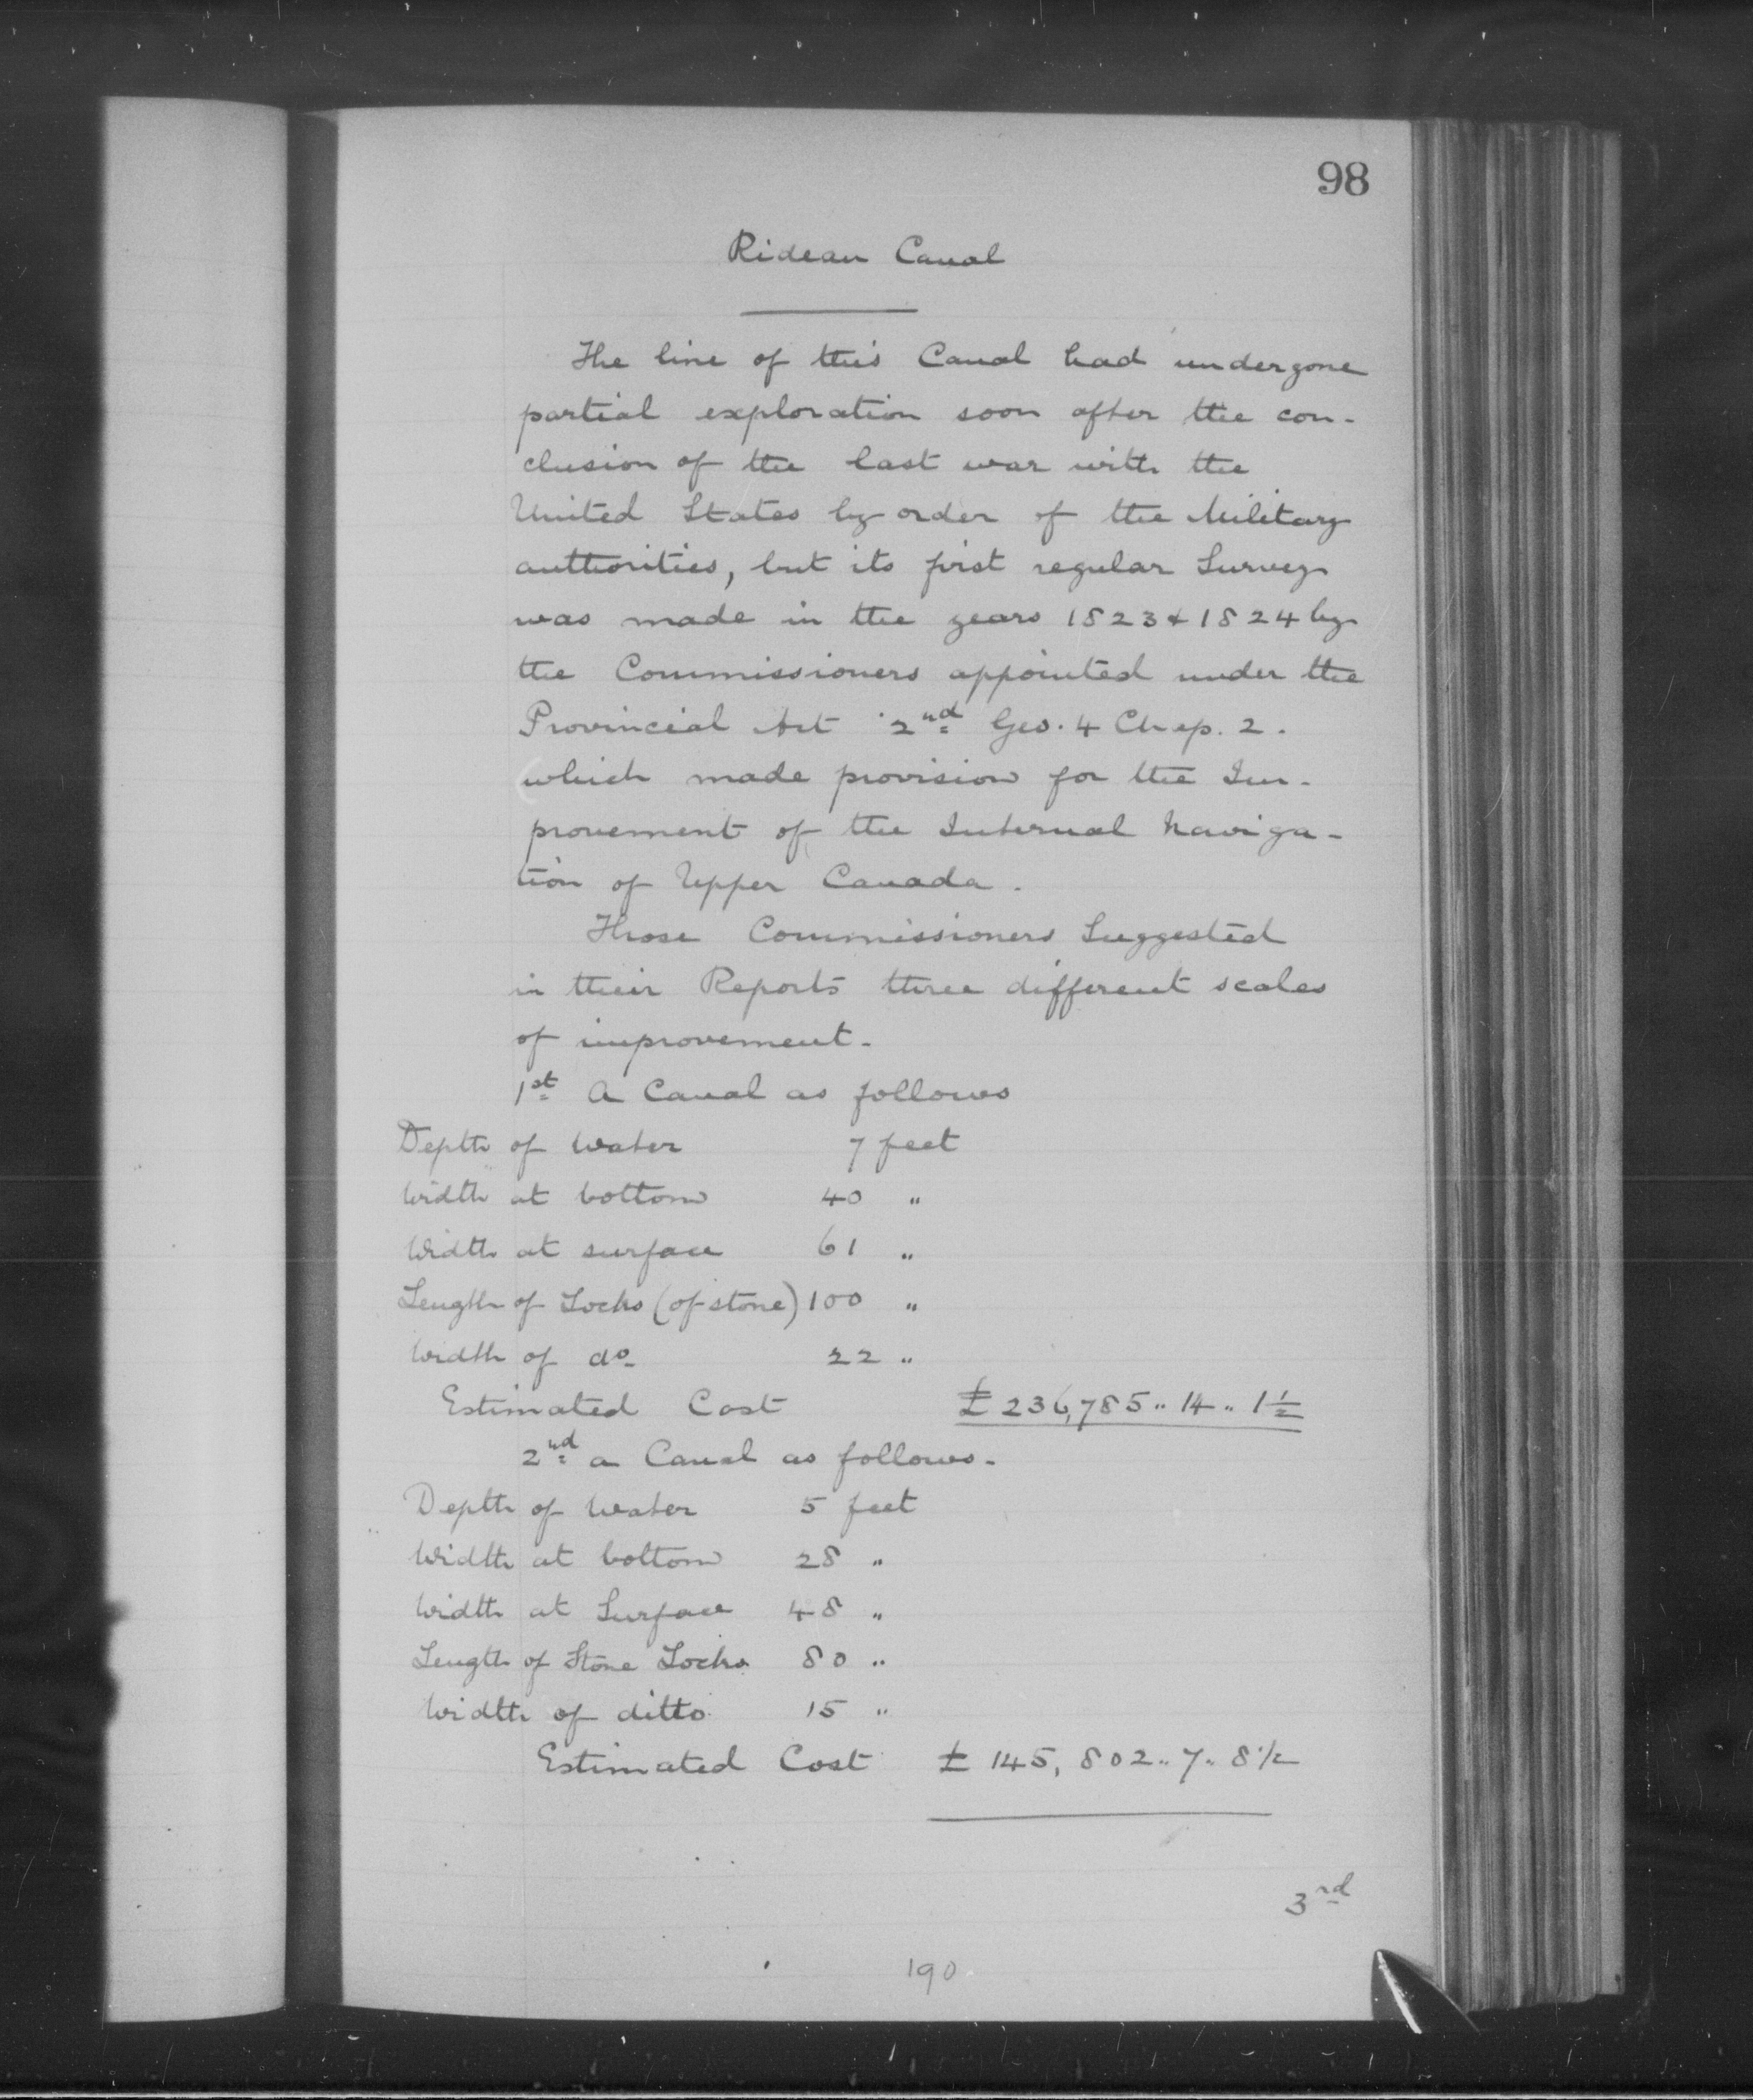 98
Rideau Canal
The line of this Canal had undergone
partial exploration soon after the con-
clusion of the last war with the
United States by order of the Military
authorities, but its first regular Survey
was made in the years 1823 & 1824 by
the Commissioners appointed under the
Provincial Act 2nd Geo. 4 Chap. 2.
which made provision for the Im-
provement of the Internal Naviga-
tion of Upper Canada.
Those Commissioners Suggested
in their Reports three different scales
of improvement.
1st A Canal as follows
Depth of Water 7 feet
Width at bottom 40 "
Width at surface 61 "
Length of Locks (of stone) 100 "
Width of do 22 "
Estimated Cost £ 236,785 .. 14 .. 1 1/2
2nd a Canal as follows.
Depth of Water 5 feet
Width at bottom 28 "
Width at Surface 48 "
Length of Stone Locks 80 "
Width of ditto 15 "
Estimated Cost £ 145,802 .. 7 .. 8 1/2
3rd
190